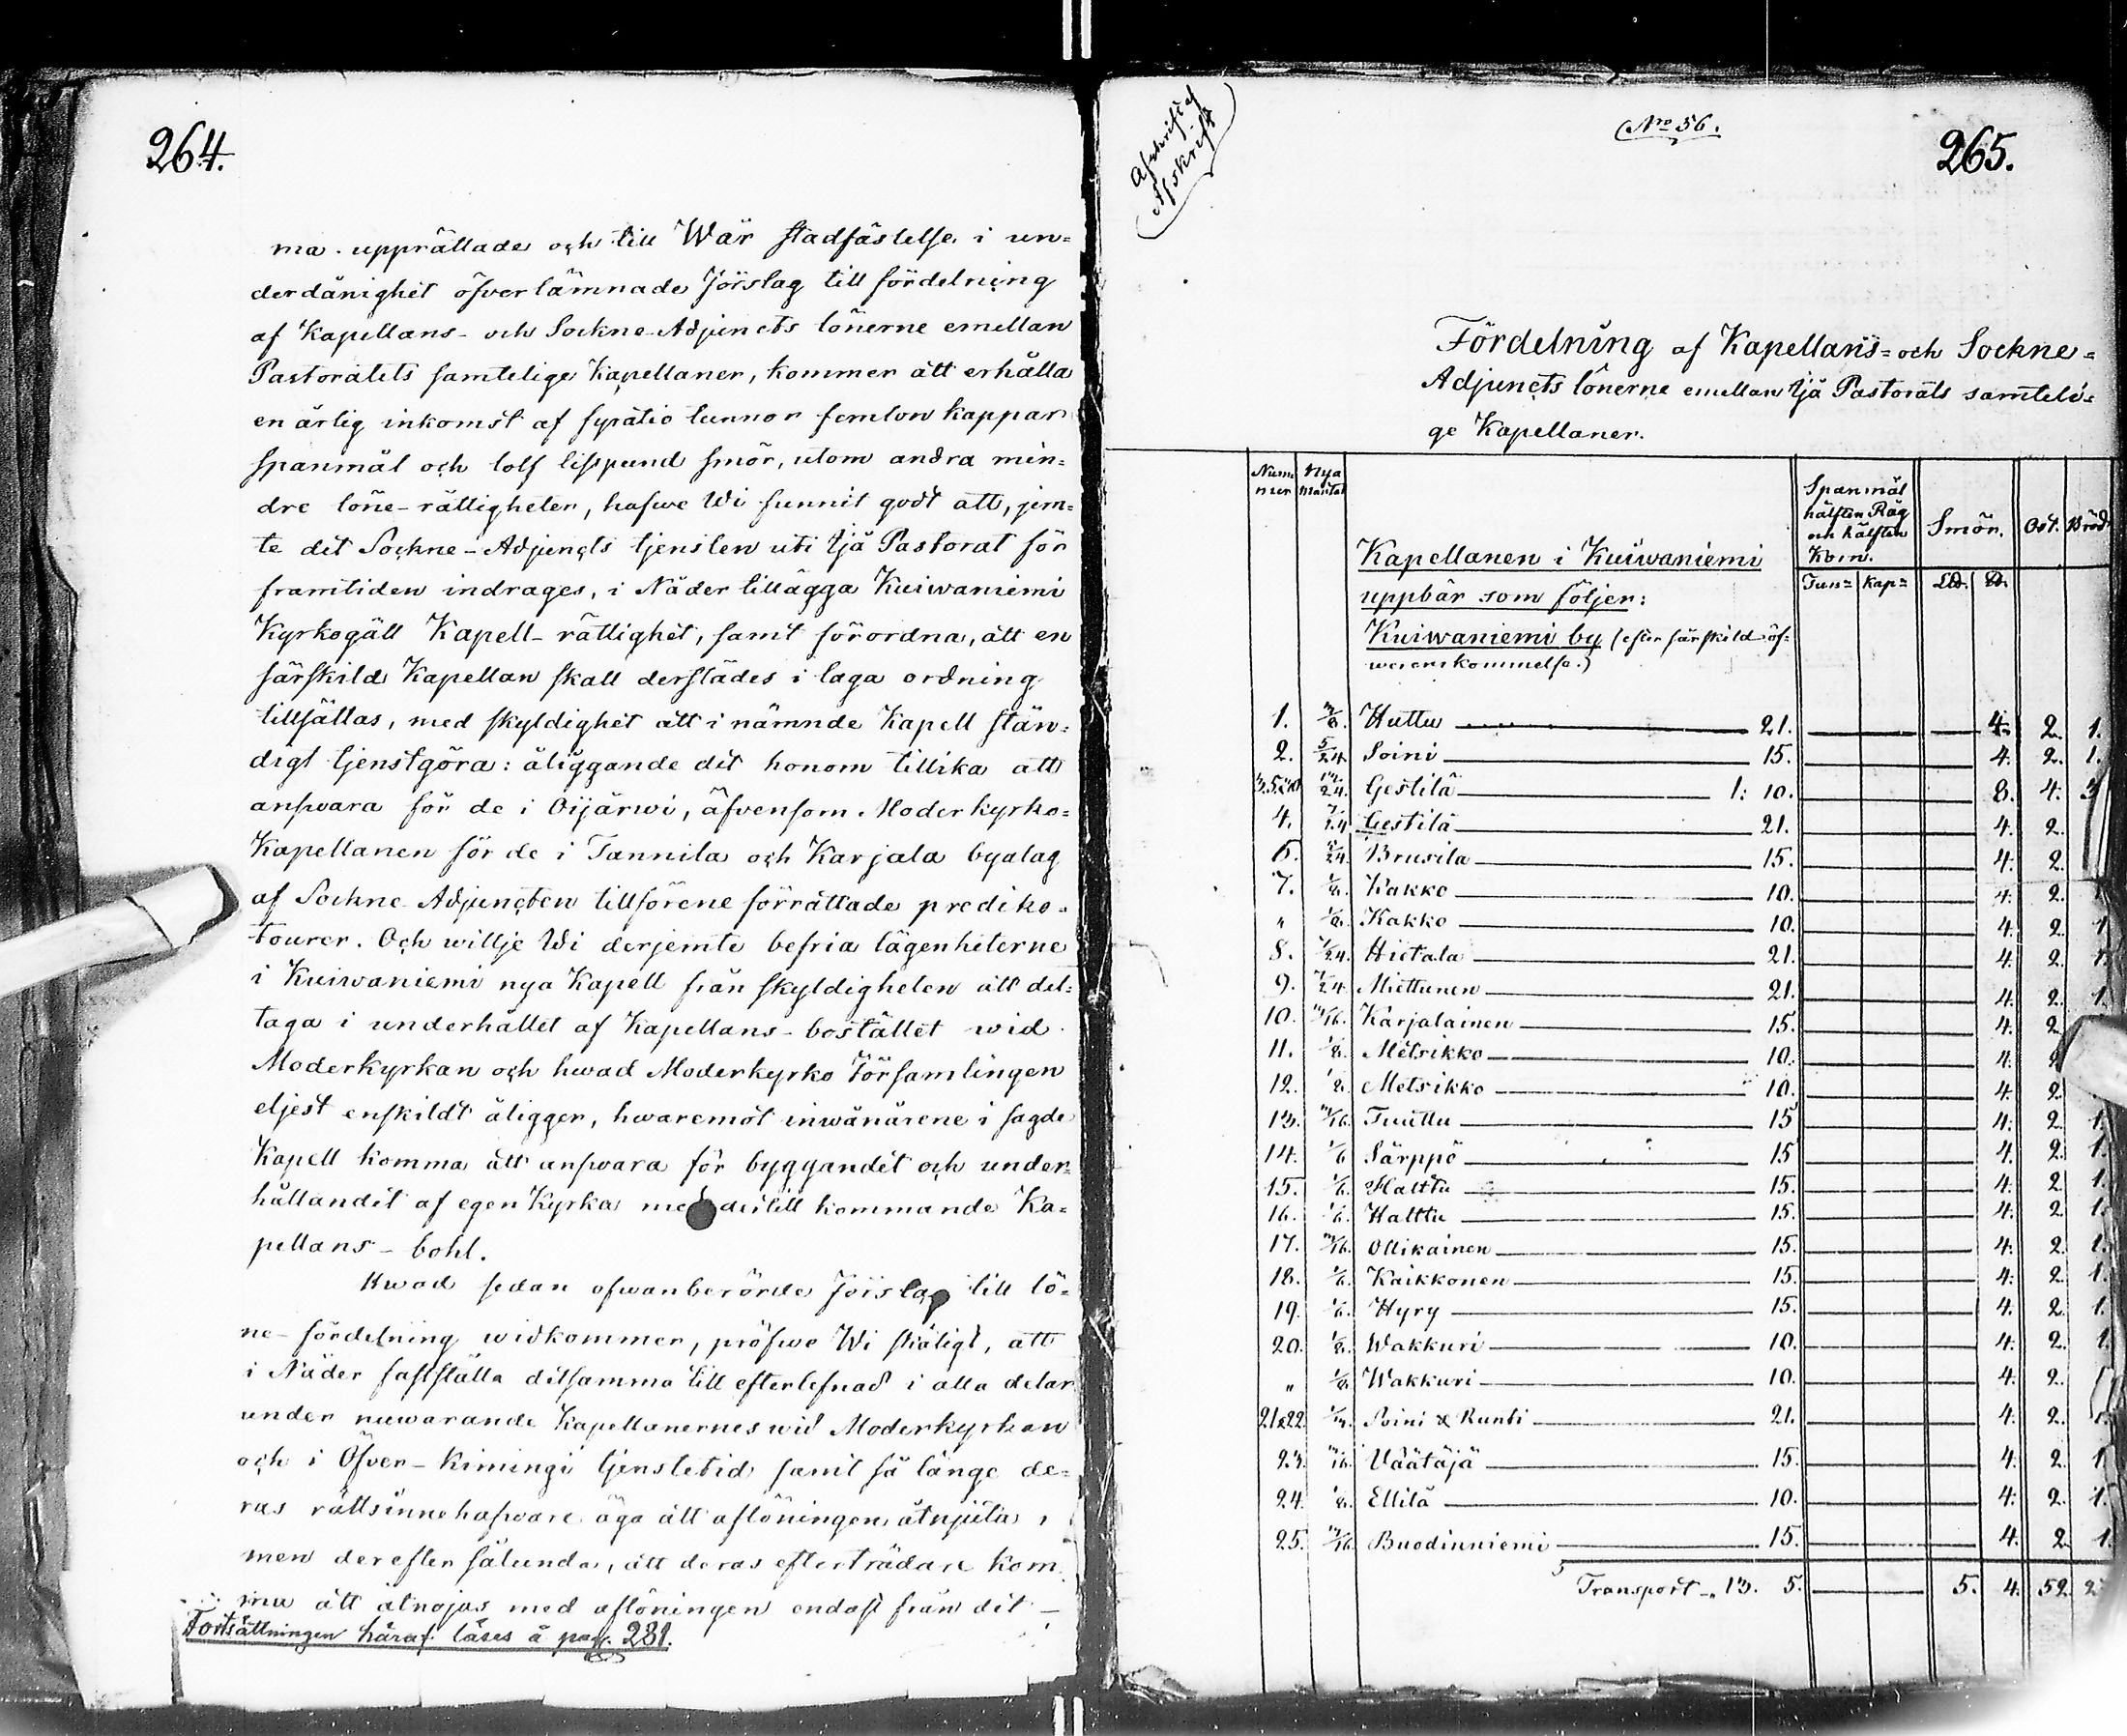 264.
ma upprättade och till Wår stadfästelse i un=
derdånighet öfverlämnade Förslag till fördelning
af Kapellans- och Sockne-Adjuncts lönerne emellan
Pastoratets samtelige Kapellaner, kommer att erhålla
en årlig inkomst af fyratio tunnor femton kappar
spanmål och tolf lispund smör, utom andra min=
dre löne-rättigheter, hafwe Wi funnit godt att, jem=
te det Sockne-Adjuncts tjensten uti Ijå Pastorat för
framtiden indrages, i Nåder tillägga Kuiwaniemi
Kyrkogäll Kapell-rättighet, samt förordna, att en
särskild Kapellan skall derstädes i laga ordning
tillsättas, med skyldighet att i nämnde Kapell stän=
digt tjenstgöra: åliggande det honom tillika att
answara för de i Oijärwi, äfvensom Moderkyrko=
Kapellanen för de i Tannila och Karjala byalag
af Sockne Adjuncten tillförene förrättade prediko=
tourer. Och willje Wi derjemte befria lägenheterne
i Kuiwaniemi nya Kapell från skyldigheten att del=
taga i underhållet af Kapellans-bostället wid
Moderkyrkan och hwad Moderkyrko Församlingen
eljest enskildt åligger, hwaremot inwånarene i sagde
Kapell komma att answara för byggandet och under=
hållandet af egen Kyrka med dertill kommande Ka=
pellans-bohl.
Hwad sedan ofwanberörde Förslag till lö=
ne-fördelning widkommer, pröfwe Wi skäligt, att
i Nåder fastställa detsamma till efterlefnad i alla delar
under nuwarande Kapellanernes wid Moderkyrkan
och i Öfver-Kimingi tjenstetid samt så länge de=
ras rättsinnehafware äga att aflöningen åtnjuta,
men derefter sålunda, att deras efterträdare kom
ma att åtnöjas med aflöningen endast från det
Fortsättningen häraf läses å pag. 281.
Afskrift af
Afskrift
Nro 56.
265.
Fördelning af Kapellans= och Sockne=
Adjuncts lönerne emellan Ijå Pastorats samteli=
ge Kapellaner.
Num mer | Nya Mantal | Spanmål hälften Råg och hälften Korn. | Smör. | Ost. | Bröd
Tun= | Kap= | L℔. | ℔.
Kapellanen i Kuiwaniemi
uppbär som följer:
Kuiwaniemi by (efter särskild öf=
werenskommelse.)
1. 3/8. Huttu 21. 4. 2. 1.
2. 5/24 Soini 15. 4. 2. 1.
24. Gestilä 1: 10. 8. 4. 3
4. 7/24 Gestilä 21. 4. 2.
24. Brusila 15. 4. 2.
7. 1/8. Kakko 10. 4. 2. 1
" 1/8. Kakko 10. 4. 2. 1
8. 7/24. Hietala 21. 4. 2. 1.
9. 7/24. Miettunen 21. 4. 2. 1.
10. 3/16. Karjalainen 15. 4. 2
11. 1/8. Metsikko 10. 4. 2
12. 1/8. Metsikko 10. 4. 2.
13. 3/16. Tuuttu 15 4. 2. 1.
14. 1/6 Särppö 15 4. 2. 1.
15. 1/6. Halttu 15. 4. 2. 1.
16. 1/6. Halttu 15. 4. 2. 1.
17. 3/16. Ollikainen 15. 4. 2. 1.
18. 1/6. Kaikkonen 15. 4. 2. 1.
19. 1/6. Hyry 15. 4. 2. 1.
20. 1/8. Wakkuri 10. 4. 2. 1.
" 1/8. Wakkuri 10. 4. 2.
21&22. Soini & Runti 21. 4. 2.
23. 3/16. Väätäjä 15. 4. 2. 1
24. 1/8. Ellilä 10. 4. 2. 1.
25. 3/16. Buodinniemi 15. 4. 2. 1.
Transport 13. 5. 5. 4. 52. 2